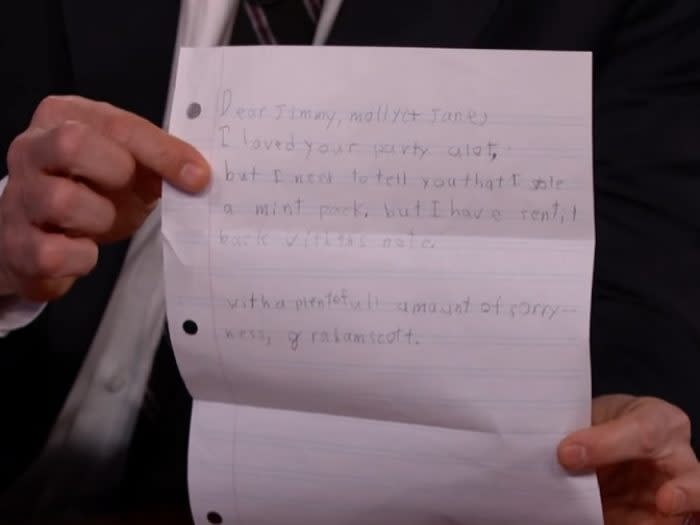 Dear Jimmy, molly(+ Jane)
I loved your party alot,
but I need to tell you that I stole
a mint pack, but I have sent it
back with this note.
with a plentefull amount of sorry-
ness, grahamscott.